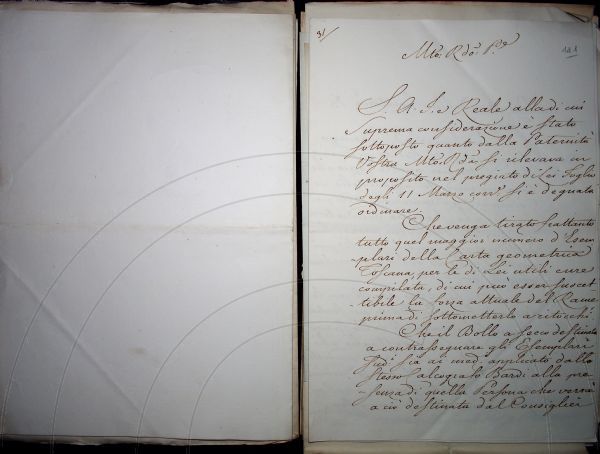 31
141
Mto: Rdo: Pe
S. A. I. e Reale alla di cui
Suprema considerazione è stato
sottoposto quanto dalla Paternità
Vostra Mto: Rda: si rilevava in
proposito nel pregiato di Lei Foglio
degli 11 Marzo corre si è degnata
ordinare
Che venga tirato frattanto
tutto quel maggior numero d'Esem-
-plari della Carta geometrica
Toscana, per le di Lei utili cure
compilata, di cui può esser suscet-
-tibile la forza attuale del Rame
prima di sottometterlo a ritocchi
Che il Bollo a secco destinato
a contrassegnare gli Esemplari
sia ai med. applicato dallo
stesso Bardi alla pre-
-senza di quella Persona che verrà
a ciò destinata dal Consiglier